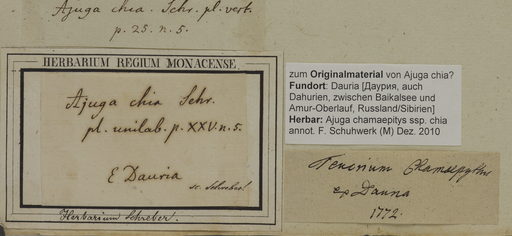 Ajuga chia. Schr. pl. vert.
p. 25. n. 5.
HERBARIUM REGIUM MONACENSE.
Ajuga chia Schr.
pl. unilab. p. XXV. n. 5.
E Dauria
sc. Schreber!
Herbarium Schreber.
zum Originalmaterial von Ajuga chia?
Fundort: Dauria [Даурия, auch
Dahurien, zwischen Baikalsee und
Amur-Oberlauf, Russland/Sibirien]
Herbar: Ajuga chamaepitys ssp. chia
annot. F. Schuhwerk (M) Dez. 2010
Teucrium Chamaepythis
ex Dauria
1772.